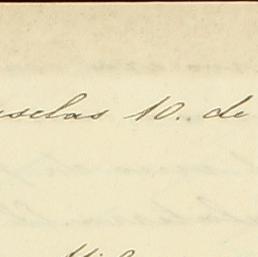 uselas 10. de